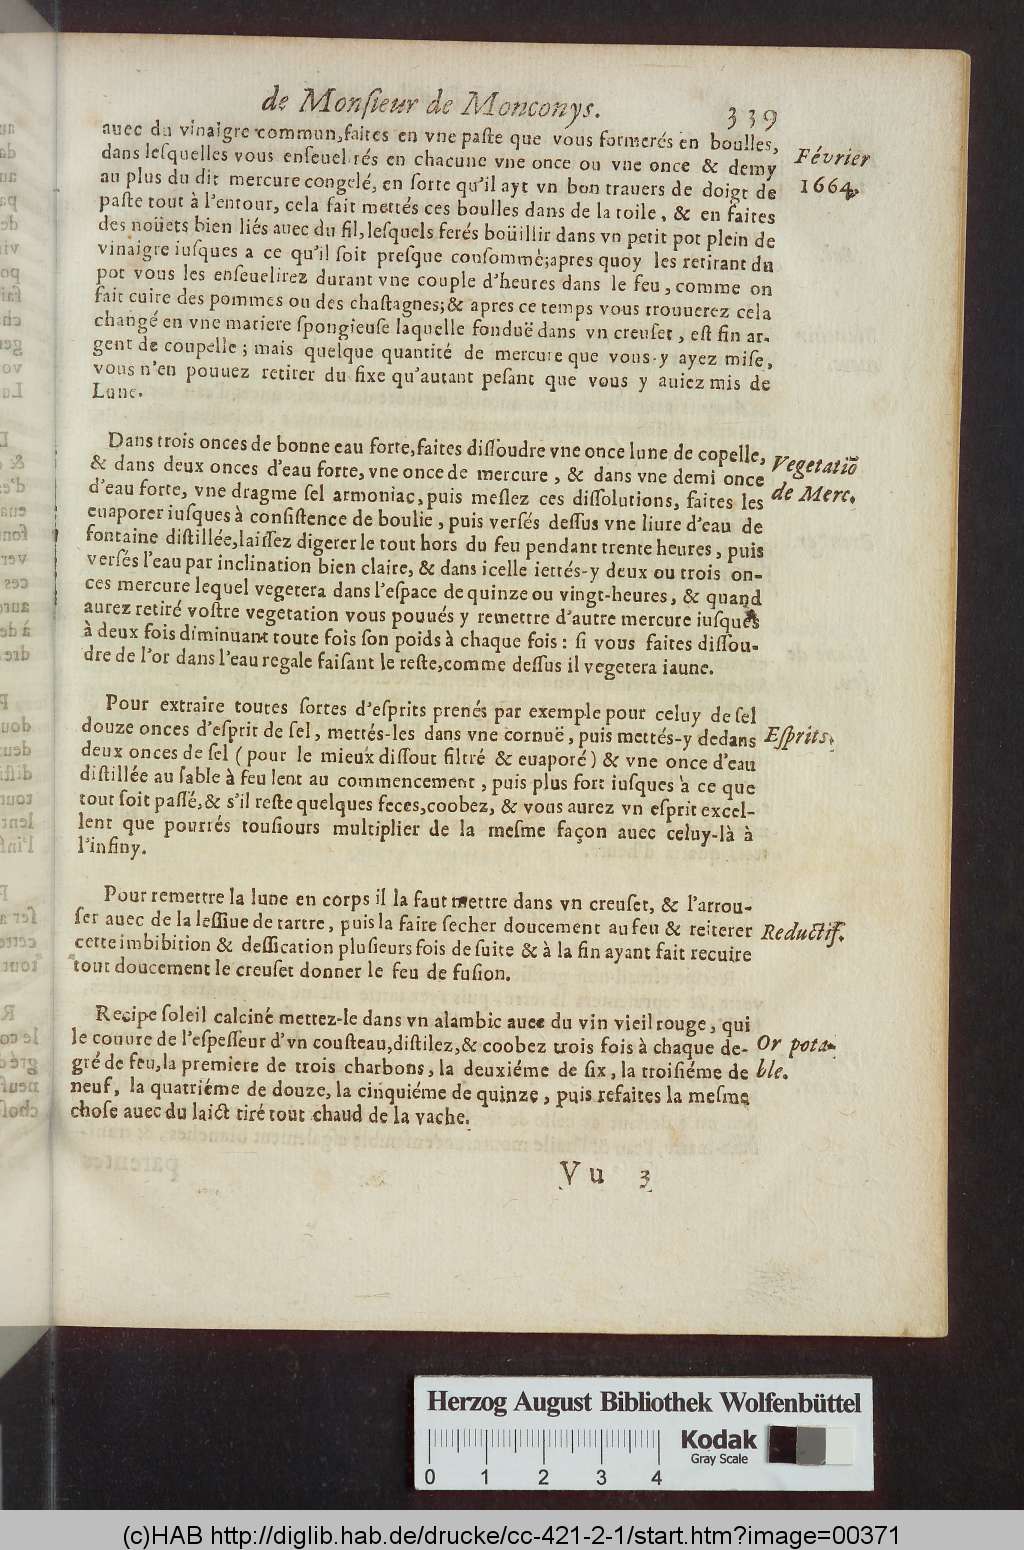 de Monſieur de Monconys. 339
auec du vinaigre commun, faites en vne paſte que vous formerés en boulles,
dans leſquelles vous enſeuelirés en chacune vne once ou vne once & demy
au plus du dit mercure congelé, en ſorte qu'il ayt vn bon trauers de doigt de
paſte tout à l'entour, cela fait mettés ces boulles dans de la toile, & en faites
des noüets bien liés auec du fil, leſquels ferés boüillir dans vn petit pot plein de
vinaigre iuſques a ce qu'il ſoit preſque conſommé; apres quoy les retirant du
pot vous les enſeuelirez durant vne couple d'heures dans le feu, comme on
fait cuire des pommes ou des chaſtagnes; & apres ce temps vous trouuerez cela
changé en vne matiere ſpongieuſe laquelle fonduë dans vn creuſet, eſt fin ar-
gent de coupelle; mais quelque quantité de mercure que vous y ayez miſe,
vous n'en pouuez retirer du fixe qu'autant peſant que vous y auiez mis de
Lune.
Février
1664.
Dans trois onces de bonne eau forte, faites diſſoudre vne once lune de copelle,
& dans deux onces d'eau forte, vne once de mercure, & dans vne demi once
d'eau forte, vne dragme ſel armoniac, puis meſlez ces diſſolutions, faites les
euaporer iuſques à conſiſtence de boulie, puis verſés deſſus vne liure d'eau de
fontaine diſtillée, laiſſez digerer le tout hors du feu pendant trente heures, puis
verſés l'eau par inclination bien claire, & dans icelle iettés-y deux ou trois on-
ces mercure lequel vegetera dans l'eſpace de quinze ou vingt-heures, & quand
aurez retiré voſtre vegetation vous pouués y remettre d'autre mercure iuſques
à deux fois diminuant toute fois ſon poids à chaque fois: ſi vous faites diſſou-
dre de l'or dans l'eau regale faiſant le reſte, comme deſſus il vegetera iaune.
Vegetatiõ
de Merc.
Pour extraire toutes ſortes d'eſprits prenés par exemple pour celuy de ſel
douze onces d'eſprit de ſel, mettés-les dans vne cornuë, puis mettés-y dedans
deux onces de ſel (pour le mieux diſſout filtré & euaporé) & vne once d'eau
diſtillée au ſable à feu lent au commencement, puis plus fort iuſques à ce que
tout ſoit paſſé, & s'il reſte quelques feces, coobez, & vous aurez vn eſprit excel-
lent que pourrés touſiours multiplier de la meſme façon auec celuy-là à
l'infiny.
Eſprits.
Pour remettre la lune en corps il la faut mettre dans vn creuſet, & l'arrou-
ſer auec de la leſſiue de tartre, puis la faire ſecher doucement au feu & reiterer
cette imbibition & deſſication pluſieurs fois de ſuite & à la fin ayant fait recuire
tout doucement le creuſet donner le feu de fuſion.
Reductif.
Recipe ſoleil calciné mettez-le dans vn alambic auec du vin vieil rouge, qui
le couure de l'eſpeſſeur d'vn couſteau, diſtilez, & coobez trois fois à chaque de-
gré de feu, la premiere de trois charbons, la deuxiéme de ſix, la troiſiéme de
neuf, la quatriéme de douze, la cinquiéme de quinze, puis refaites la meſme
choſe auec du laict tiré tout chaud de la vache.
Or pota-
ble.
Vu 3
Herzog August Bibliothek Wolfenbüttel
Kodak
Gray Scale
0 1 2 3 4
(c)HAB http://diglib.hab.de/drucke/cc-421-2-1/start.htm?image=00371